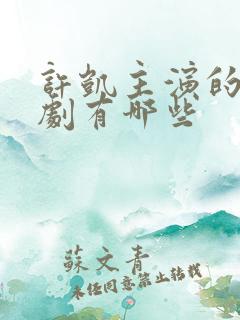 許凱主演的
劇有哪些
蘇文青
未經同意禁止轉載